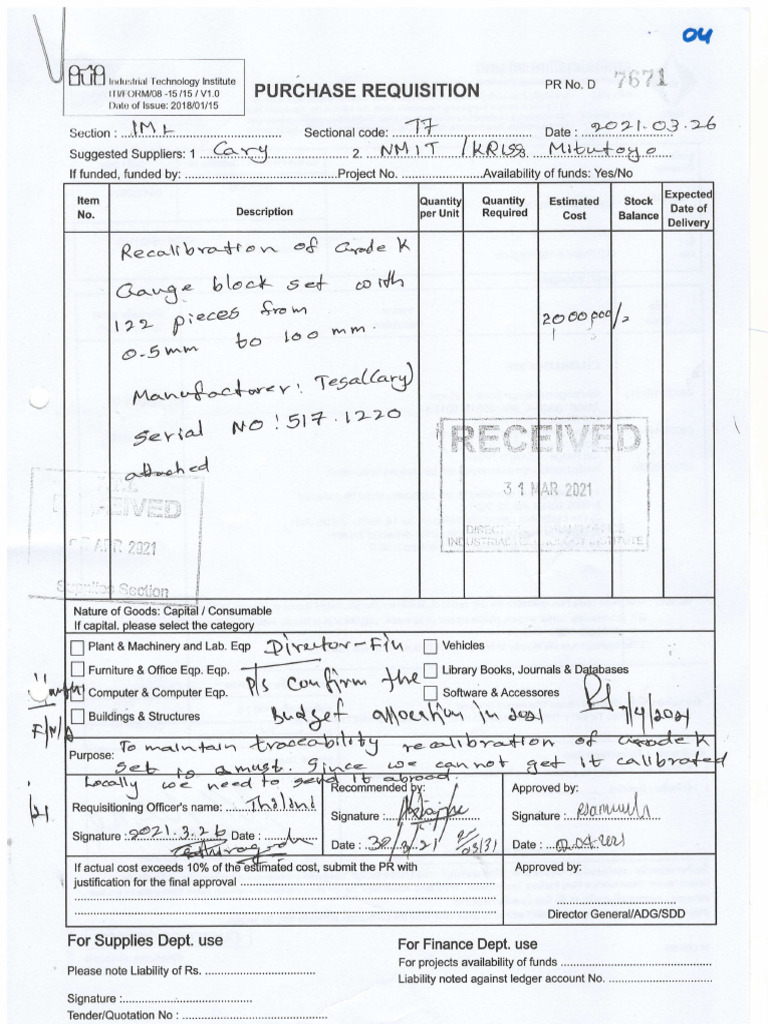 04
Industrial Technology Institute
ITI/FORM/08 -15 /15 / V1.0
Date of Issue: 2018/01/15
PURCHASE REQUISITION
PR No. D 7671
Section : IML Sectional code: T7 Date : 2021.03.26
Suggested Suppliers: 1 Cary 2. NMIT /KRISS Mitutoyo
If funded, funded by: Project No. Availability of funds: Yes/No
Item No. Description Quantity per Unit Quantity Required Estimated Cost Stock Balance Expected Date of Delivery
Recalibration of Grade K
Gauge block set with
122 pieces from
0.5mm to 100 mm.
2000,000/=
Manufacturer: Tesa(Cary)
Serial NO: 517.1220
attached
RECEIVED
31 MAR 2021
INDUSTRIAL TECHNOLOGY INSTITUTE
RECEIVED
APR 2021
Supplies Section
Nature of Goods: Capital / Consumable
If capital. please select the category
Plant & Machinery and Lab. Eqp Director-Fin Vehicles
Furniture & Office Eqp. Eqp. Library Books, Journals & Databases
Pls confirm the
Computer & Computer Eqp. Software & Accessores
Buildings & Structures Budget allocation in 2021 7/4/2021
Purpose: To maintain traceability recalibration of Grade K
set is a must. Since we cannot get it calibrated
Locally we need to send it abroad.
Requisitioning Officer's name: Recommended by: Approved by:
Signature : 2021.3.26 Date :
Signature :
Date : 30/3/21 03/31
Signature :
Date : 02.04.2021
If actual cost exceeds 10% of the estimated cost, submit the PR with
justification for the final approval
Approved by:
Director General/ADG/SDD
For Supplies Dept. use
Please note Liability of Rs.
Signature :
Tender/Quotation No :
For Finance Dept. use
For projects availability of funds
Liability noted against ledger account No.